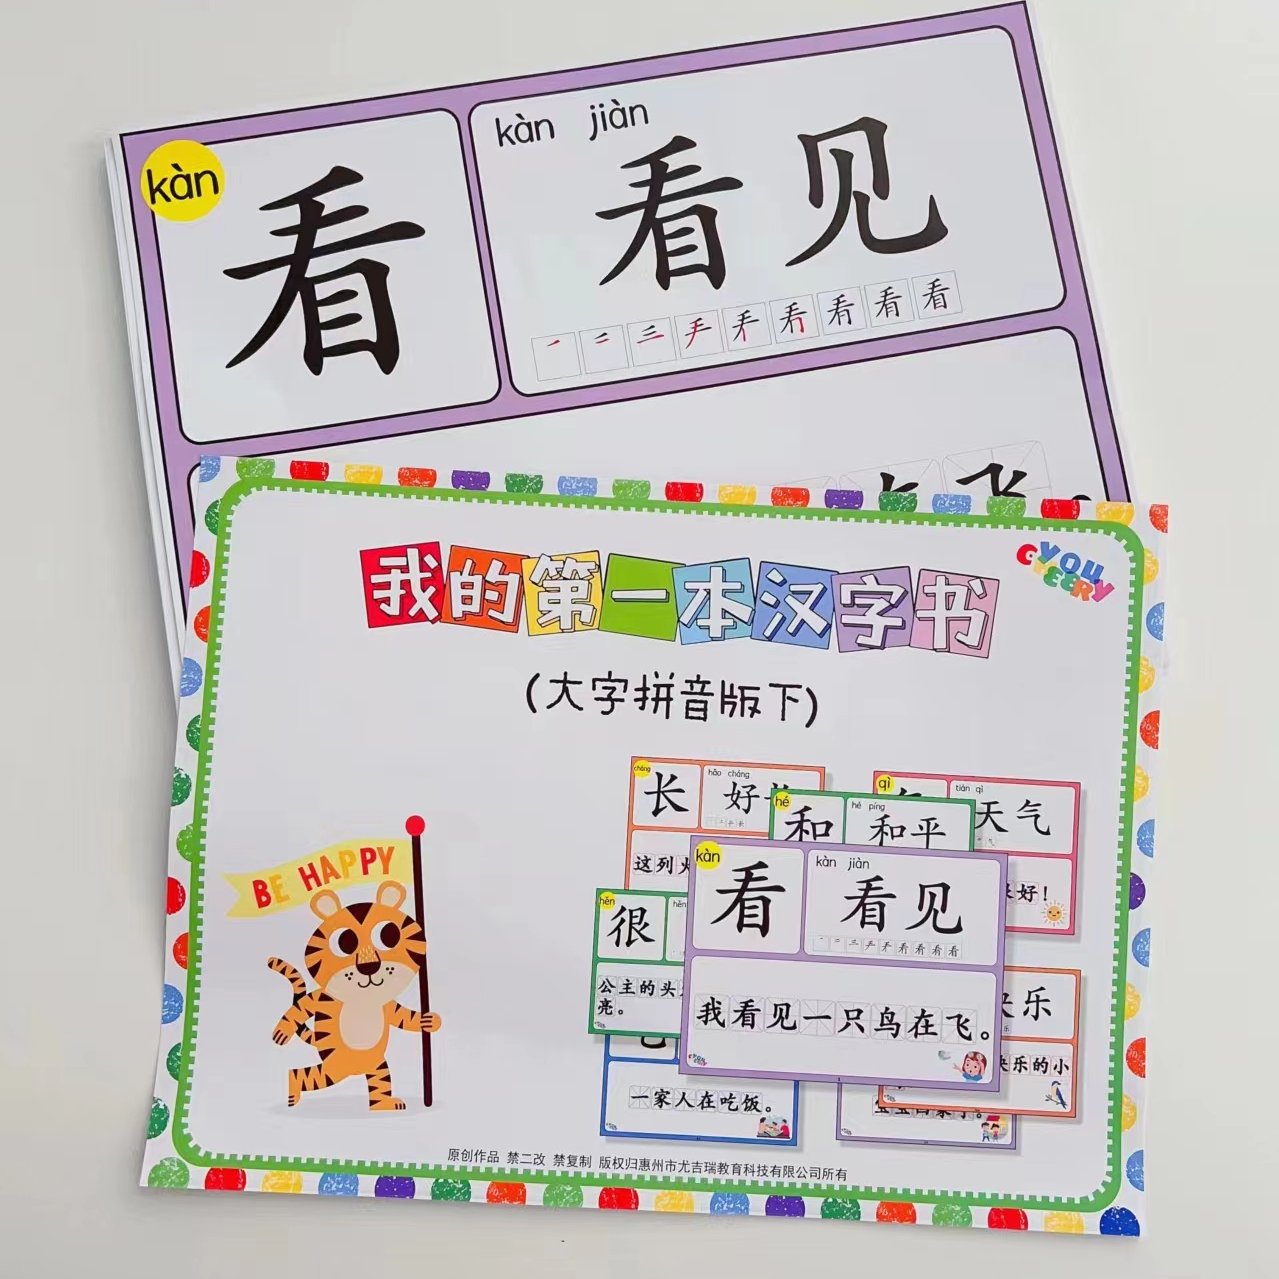 kàn
看
kàn jiàn
看见
飞。
我的第一本汉字书
YOU CHEERY
(大字拼音版下)
BE HAPPY
cháng
长
hǎo cháng
好
这列火
hé
和
hé píng
和平
qì
tiān qì
天气
好！
hěn
很
hěn
公主的头
亮。
kàn
看
kàn jiàn
看见
我看见一只鸟在飞。
乐
快乐的小
一家人在吃饭。
原创作品 禁二改 禁复制 版权归惠州市尤吉瑞教育科技有限公司所有